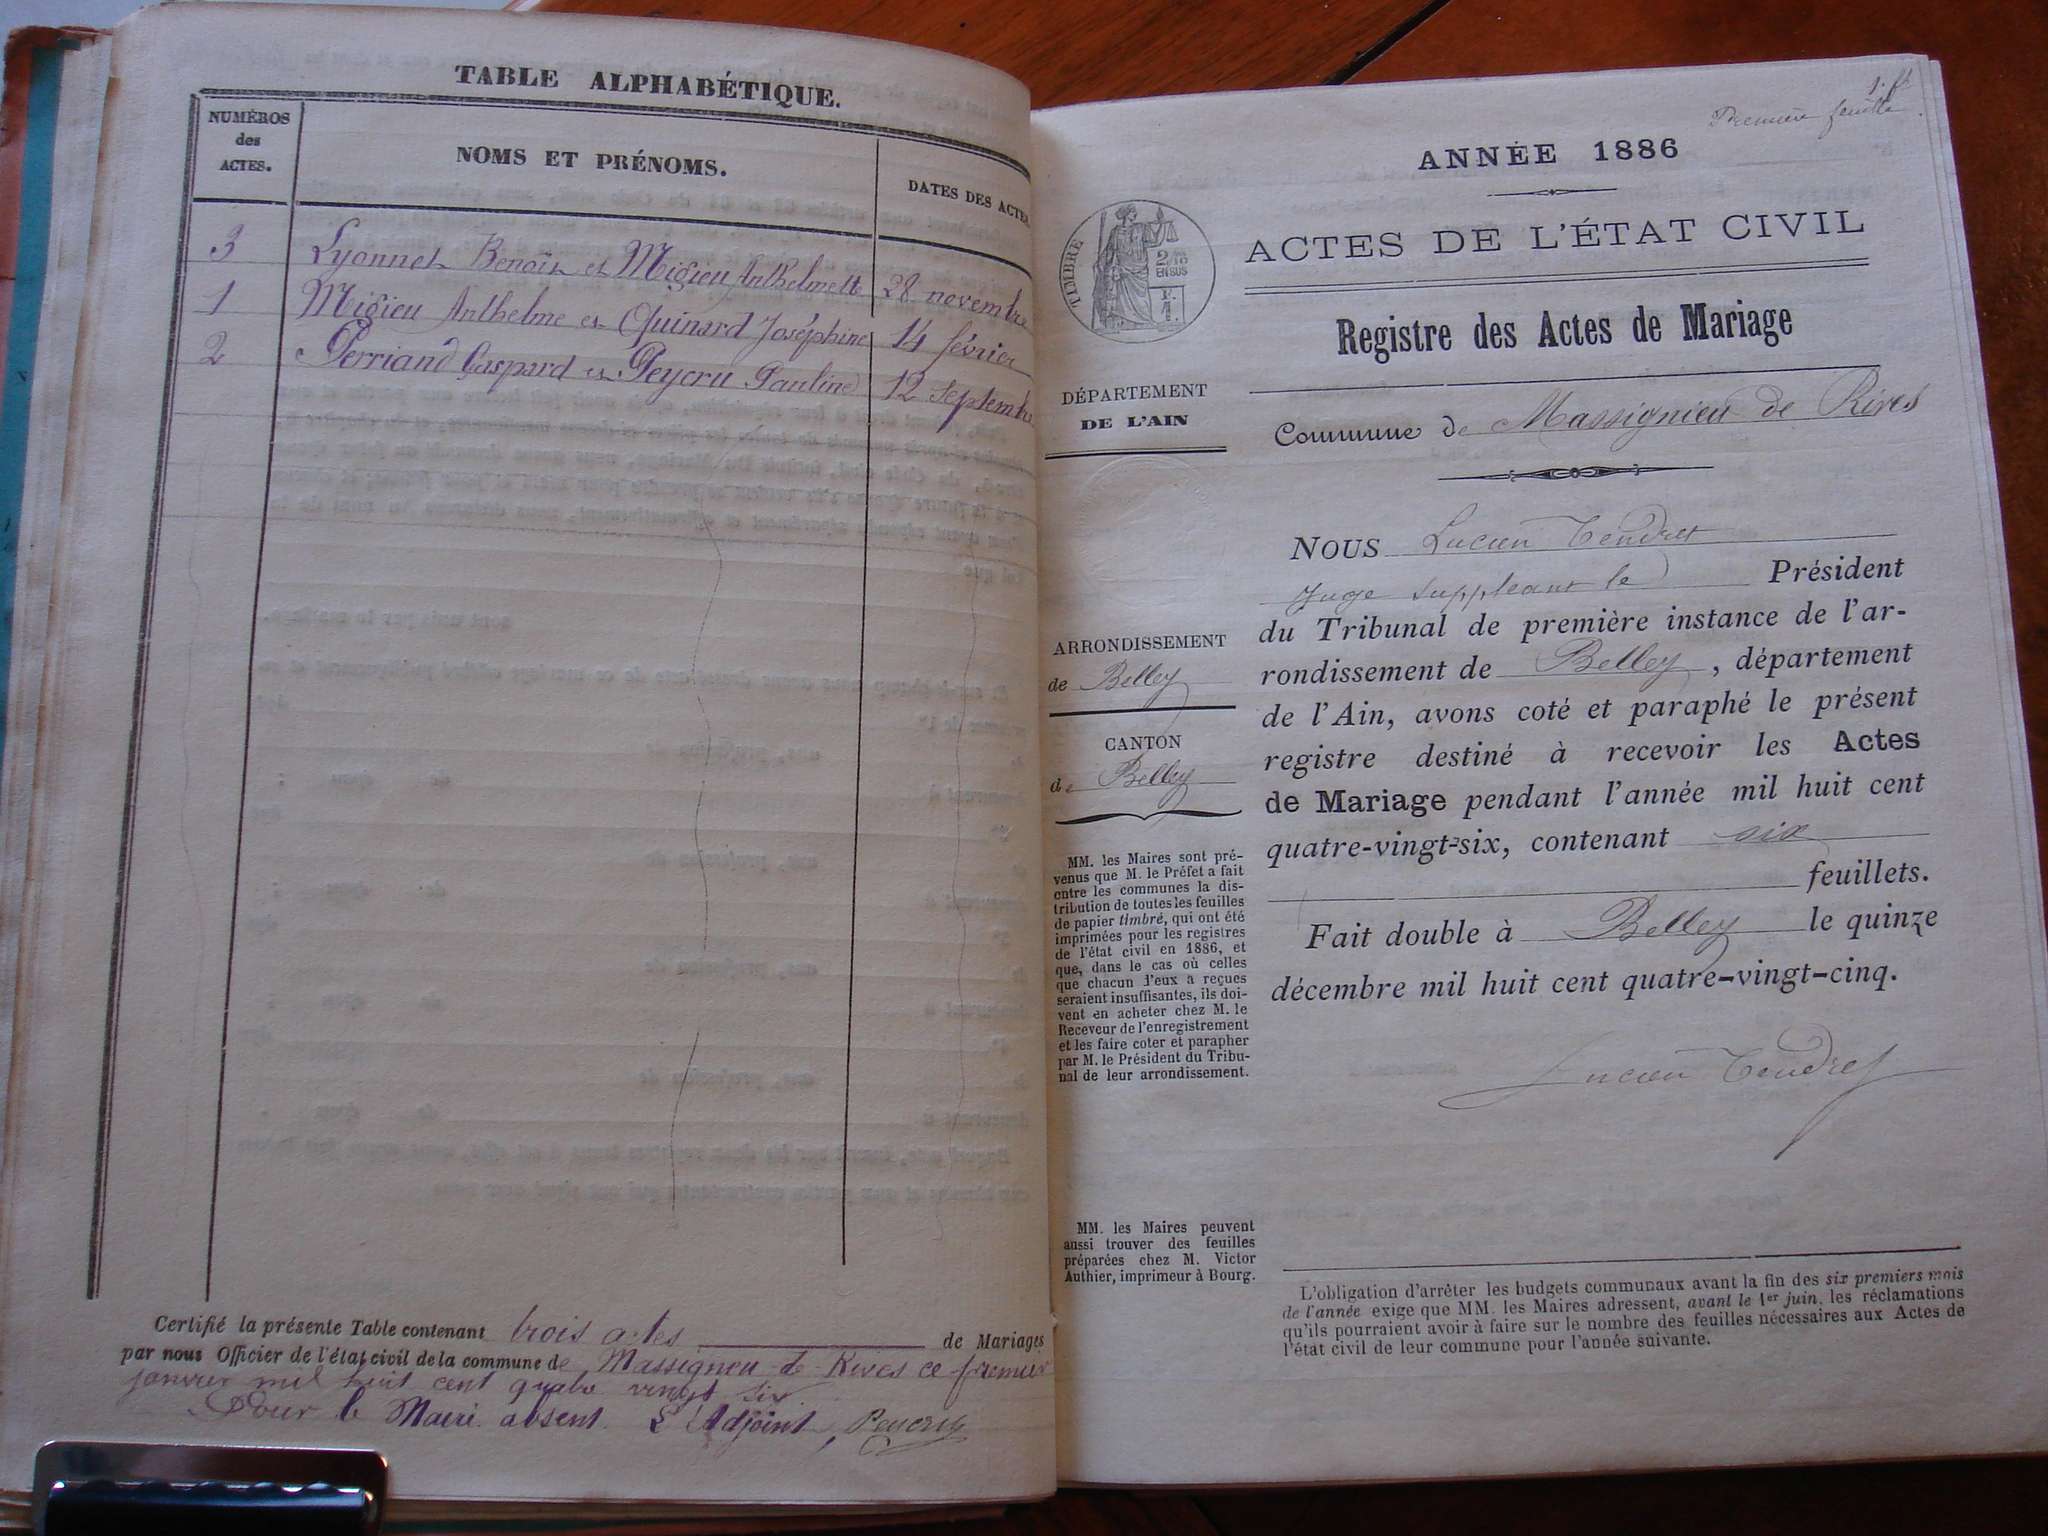 TABLE ALPHABÉTIQUE.
NUMÉROS
des
ACTES.
NOMS ET PRÉNOMS.
DATES DES ACTES
3 Lyonnet Benoît et Migieu Anthelmette 28 novembre
1 Migieu Anthelme et Quinard Joséphine 14 février
2 Perriand Gaspard et Peycru Pauline 12 Septembre
Certifié la présente Table contenant trois actes de Mariages
par nous Officier de l'état civil de la commune de Massigneu de Rives ce premier
janvier mil huit cent quatre vingt six
Pour le Maire absent. L'Adjoint, Peycru
1. ft
Première feuille
ANNÉE 1886
ACTES DE L'ÉTAT CIVIL
Registre des Actes de Mariage
Commune de Massignieu de Rives
TIMBRE
2/10
EN SUS
F.
1.
DÉPARTEMENT
DE L'AIN
ARRONDISSEMENT
de Belley
CANTON
de Belley
MM. les Maires sont pré-
venus que M. le Préfet a fait
entre les communes la dis-
tribution de toutes les feuilles
de papier timbré, qui ont été
imprimées pour les registres
de l'état civil en 1886, et
que, dans le cas où celles
que chacun d'eux a reçues
seraient insuffisantes, ils doi-
vent en acheter chez M. le
Receveur de l'enregistrement
et les faire coter et parapher
par M. le Président du Tribu-
nal de leur arrondissement.
MM. les Maires peuvent
aussi trouver des feuilles
préparées chez M. Victor
Authier, imprimeur à Bourg.
NOUS Lucien Tendret
Juge suppléant le Président
du Tribunal de première instance de l'ar-
rondissement de Belley, département
de l'Ain, avons coté et paraphé le présent
registre destiné à recevoir les Actes
de Mariage pendant l'année mil huit cent
quatre-vingt-six, contenant six
feuillets.
Fait double à Belley le quinze
décembre mil huit cent quatre-vingt-cinq.
Lucien Tendret
L'obligation d'arrêter les budgets communaux avant la fin des six premiers mois
de l'année exige que MM. les Maires adressent, avant le 1er juin, les réclamations
qu'ils pourraient avoir à faire sur le nombre des feuilles nécessaires aux Actes de
l'état civil de leur commune pour l'année suivante.